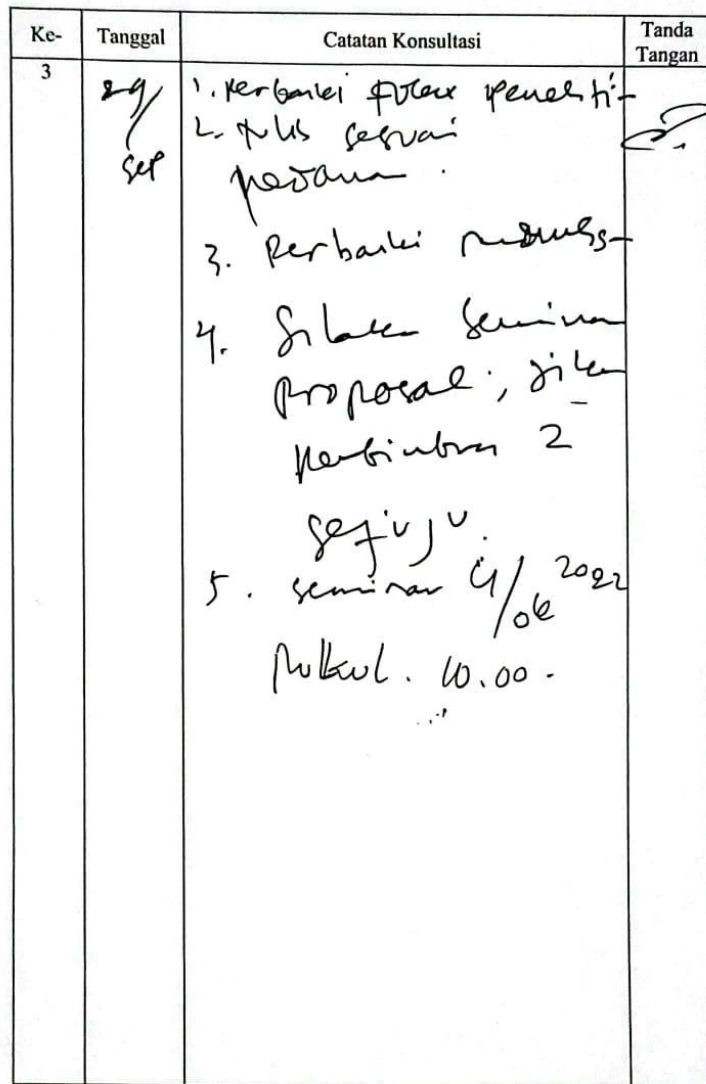 Ke- Tanggal Catatan Konsultasi Tanda Tangan
3 29/sep 1. Perbaiki fokus peneliti-
2. tulis sesuai
pedoman.
3. Perbaiki
4. Silakan seminar
proposal, jika
pembimbing 2
setuju.
5. seminar 4/06 2022
pukul. 10.00.